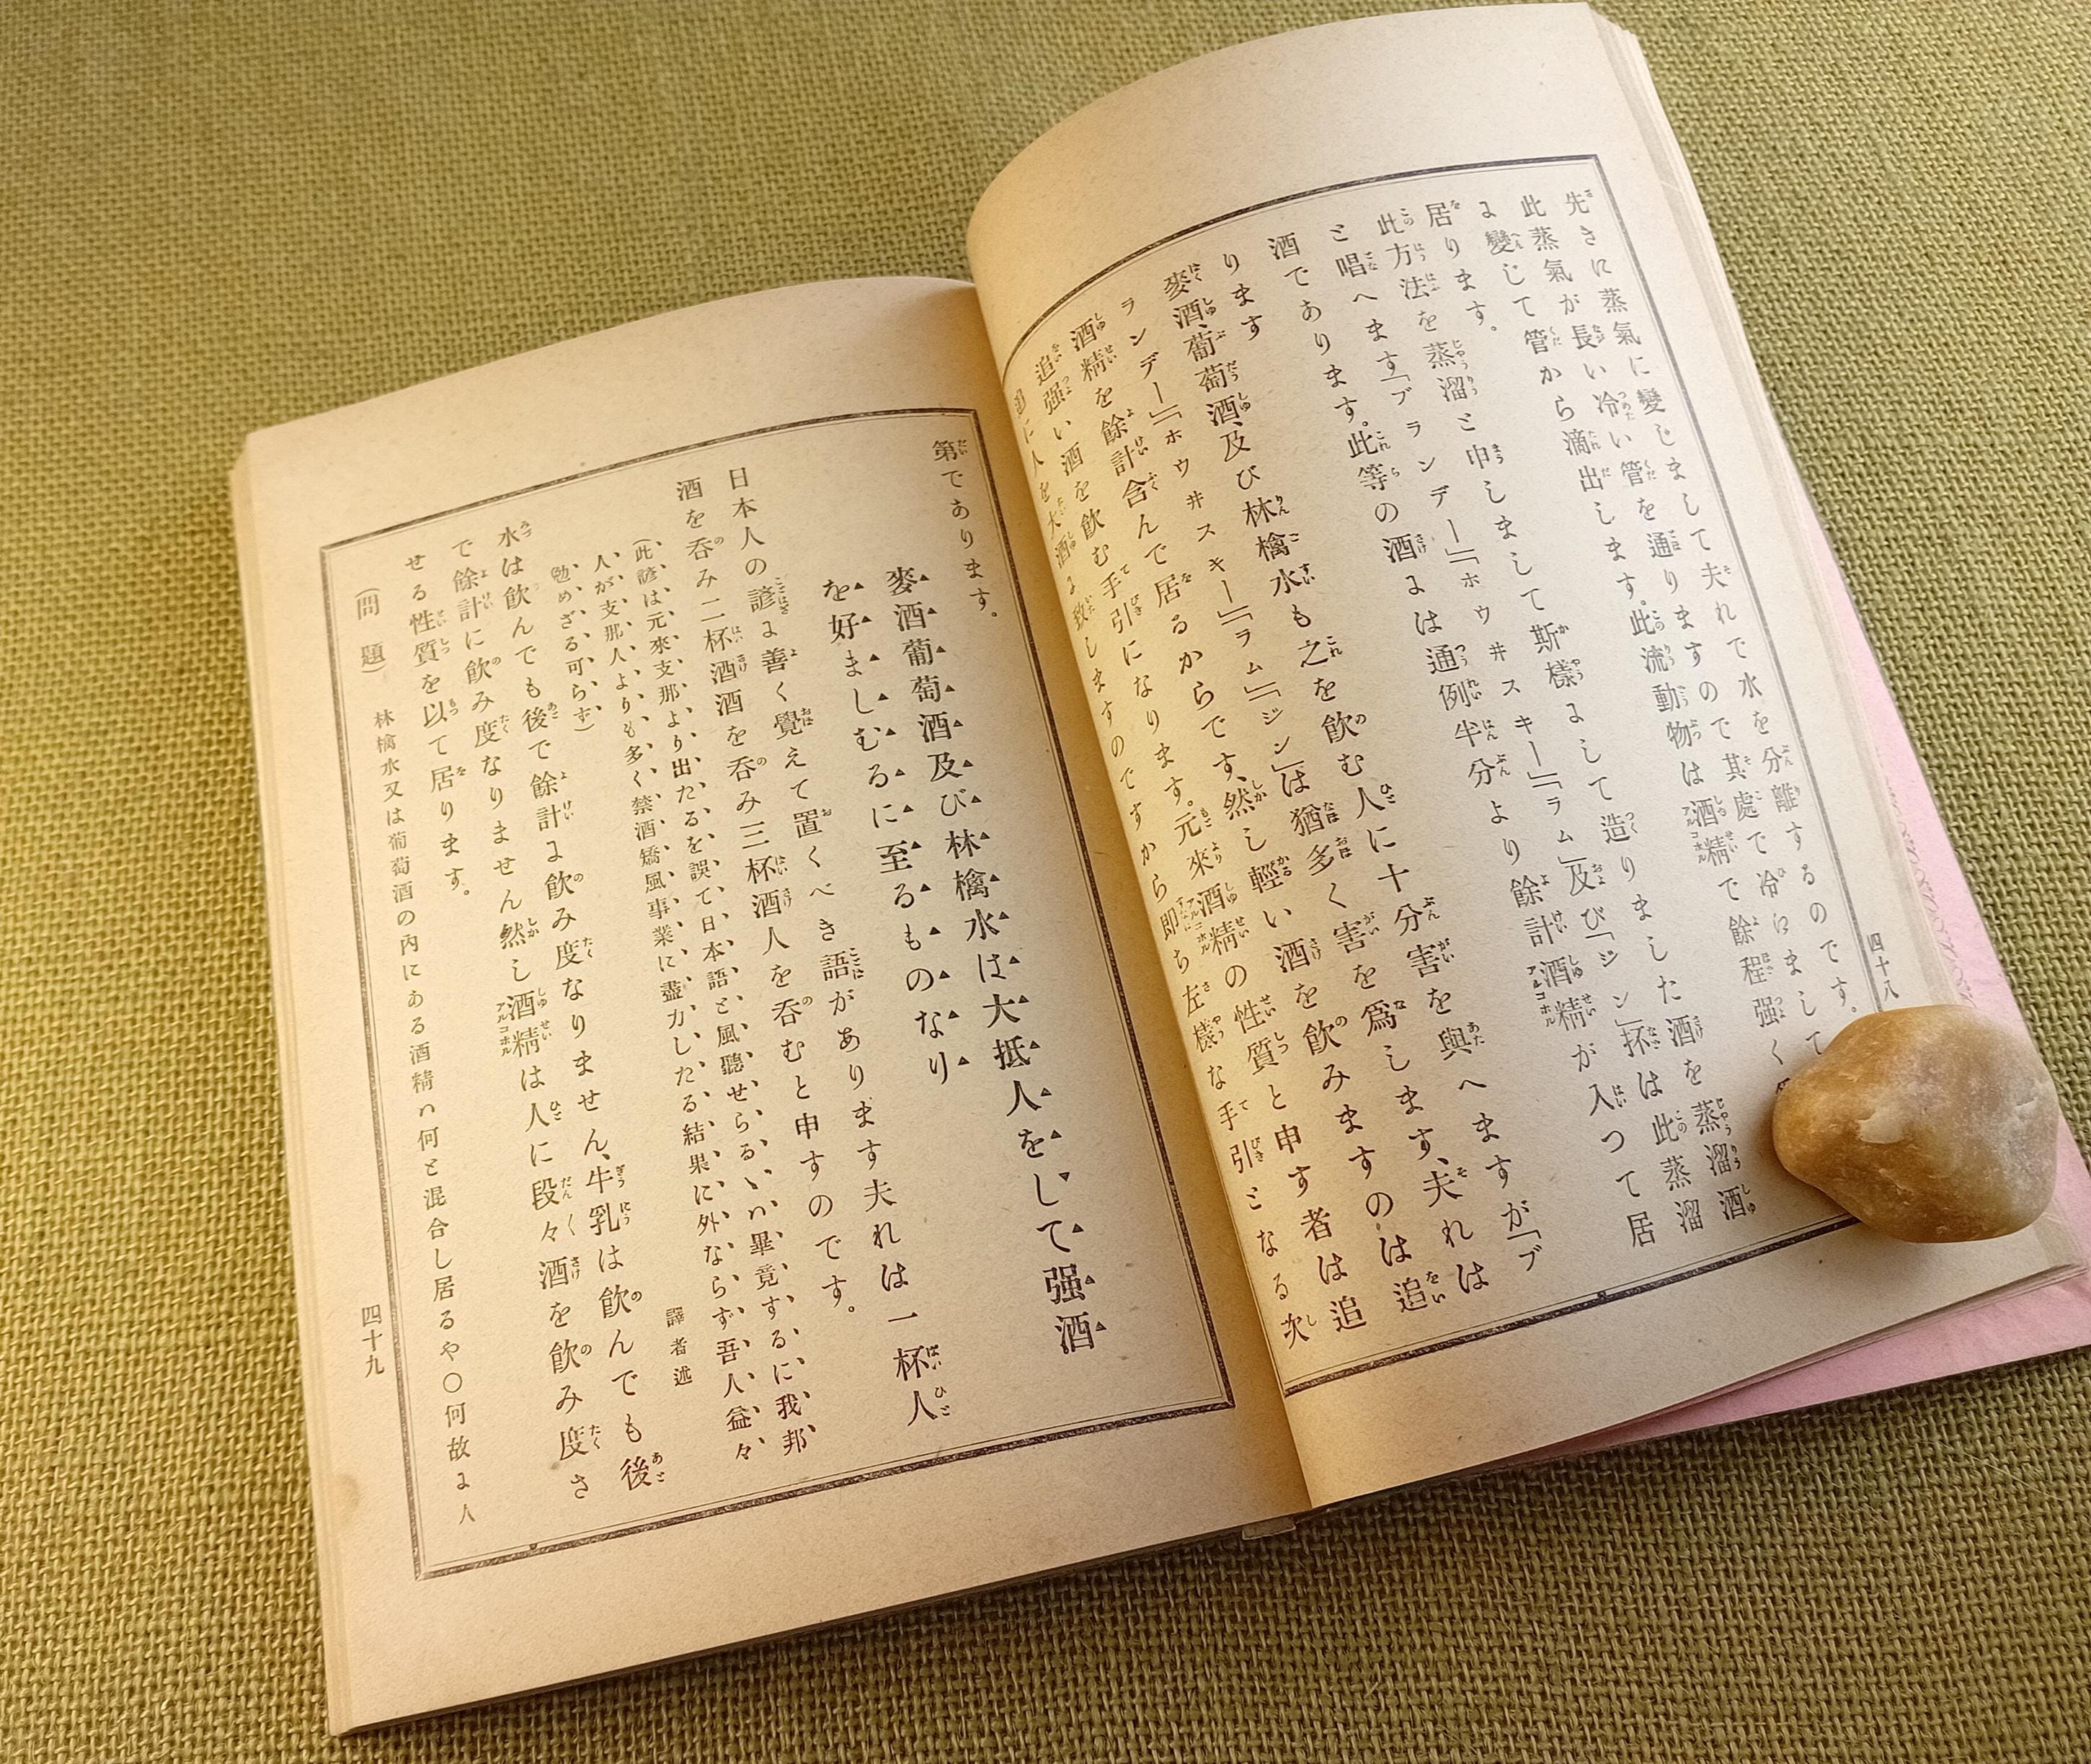 四十八
先きに蒸氣に變じまして夫れで水を分離するのです。
此蒸氣が長い冷い管を通りますので其處で冷にまして
に變じて管から滴出します。此流動物は酒精で餘程强く
居ります。
此方法を蒸溜と申しまして斯樣にして造りました酒を蒸溜酒
と唱へます「ブランデー」「ホウ井スキー」「ラム」及び「ジン」抔は此蒸溜
酒であります。此等の酒には通例半分より餘計酒精が入つて居
ります
麥酒、葡萄酒、及び林檎水も之を飮む人に十分害を與へますが「ブ
ランデー」「ホウ井スキー」「ラム」「ジン」は猶多く害を爲します、夫れは
酒精を餘計含んで居るからです、然し輕い酒を飮みますのは追
追强い酒を飮む手引になります。元來酒精の性質と申す者は追
に人を大酒に致しますのですから卽ち左樣な手引となる次
第であります。
麥酒葡萄酒及び林檎水は大抵人をして强酒
を好ましむるに至るものなり
日本人の諺に善く覺えて置くべき語があります夫れは一杯人
酒を呑み二杯酒酒を呑み三杯酒人を呑むと申すのです。
(此諺は元來支那より出たるを誤て日本語と風聽せらるゝハ畢竟するに我邦
人が支那人よりも多く禁酒矯風事業に盡力したる結果に外ならず吾人益々
勉めざる可らず)
譯者述
水は飮んでも後で餘計に飮み度なりません、牛乳は飮んでも後
で餘計に飮み度なりません然し酒精は人に段々酒を飮み度さ
せる性質を以て居ります。
(問題)
林檎水又は葡萄酒の內にある酒精ハ何と混合し居るや○何故に人
四十九